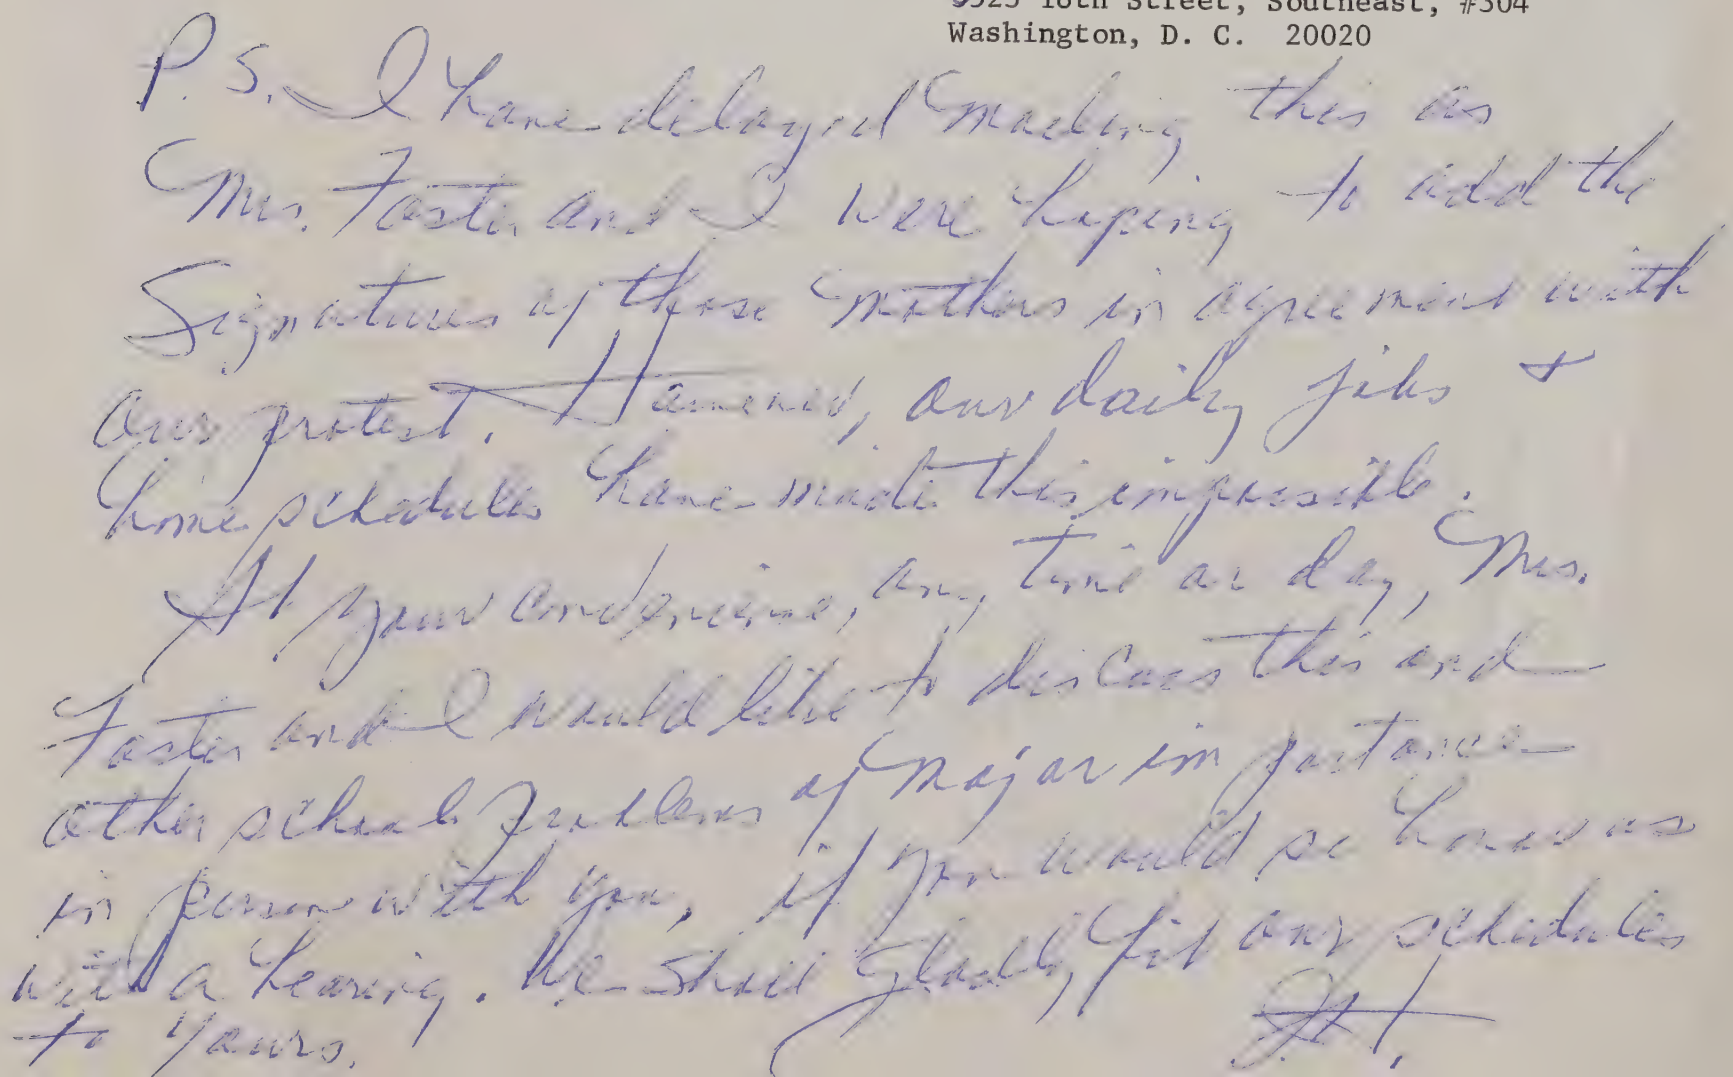 16th Street, Southeast, #304
Washington, D. C. 20020
P. S. I have delayed mailing this as
Mrs. Foster and I were hoping to add the
Signatures of those mothers in agreement with
our protest. However, our daily jobs &
home schedules have made this impossible.
At your convenience, any time or day, Mrs.
Foster and I would like to discuss this and
other school problems of major importance
in person with you, if you would so honor us
with a hearing. We shall gladly fit our schedules
to yours.